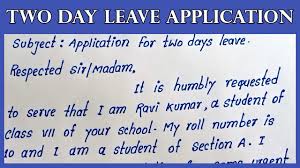 TWO DAY LEAVE APPLICATION
Subject: Application for two days leave.
Respected Sir/Madam,
It is humbly requested
to serve that I am Ravi Kumar, a student of
class VII of your school. My roll number is
10 and I am a student of section A. I